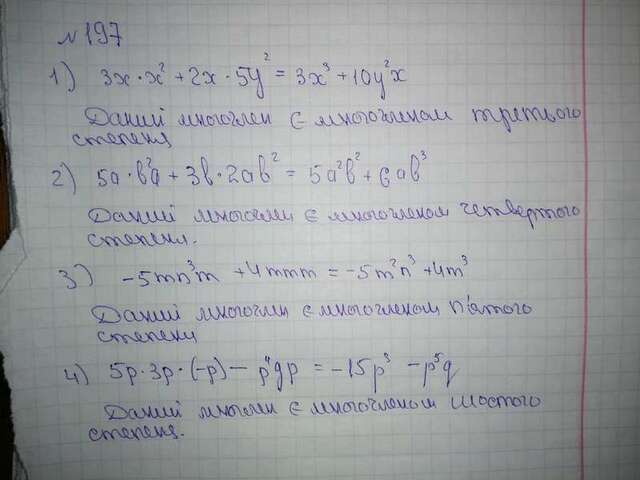 №197
1) 3x·x² + 2x·5y² = 3x³ + 10y²x
Даний многочлен є многочленом третього
степеня
2) 5a·b²a + 3b·2ab² = 5a²b² + 6ab³
Даний многочлен є многочленом четвертого
степени.
3) -5mn³m + 4mmm = -5m²n³ + 4m³
Даний многочлен є многочленом п'ятого
степени
4) 5p·3p·(-p) - p⁴qp = -15p³ - p⁵q
Даний многочлен є многочленом шостого
степеня.